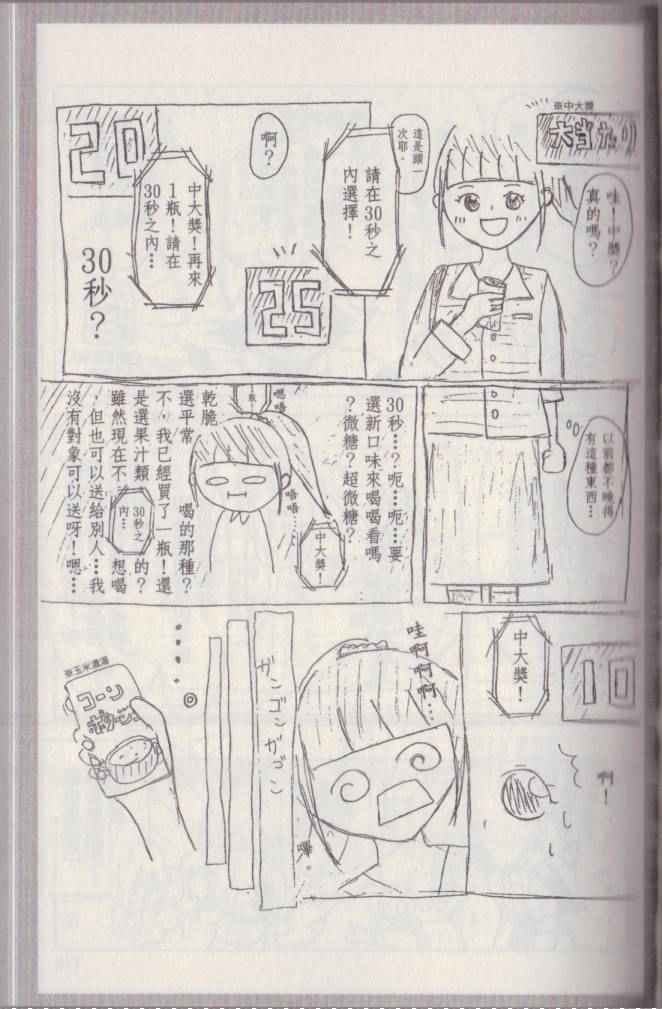 ※中大獎
大当たり
哇！中獎？
真的嗎？
這是頭一
次耶。
請在30秒之
內選擇！
啊？
25
20
中大獎！再來
1瓶！請在
30秒之內…
30秒？
以前都不曉得
有這種東西…
30秒…？呃…呃…要
選新口味來喝喝看嗎
？微糖？超微糖？
中大獎！
唔唔……
嗯唔
乾脆
選平常　喝的那種？
不，我已經買了一瓶！還
是選果汁類　的？
30秒之
內…
雖然現在不　想喝
，但也可以送給別人…我
沒有對象可以送呀！嗯…
10
中大獎！
啊！
哇啊啊啊…
嗶。
ガンゴンガゴン
…
※玉米濃湯
コーン
ポタージュ